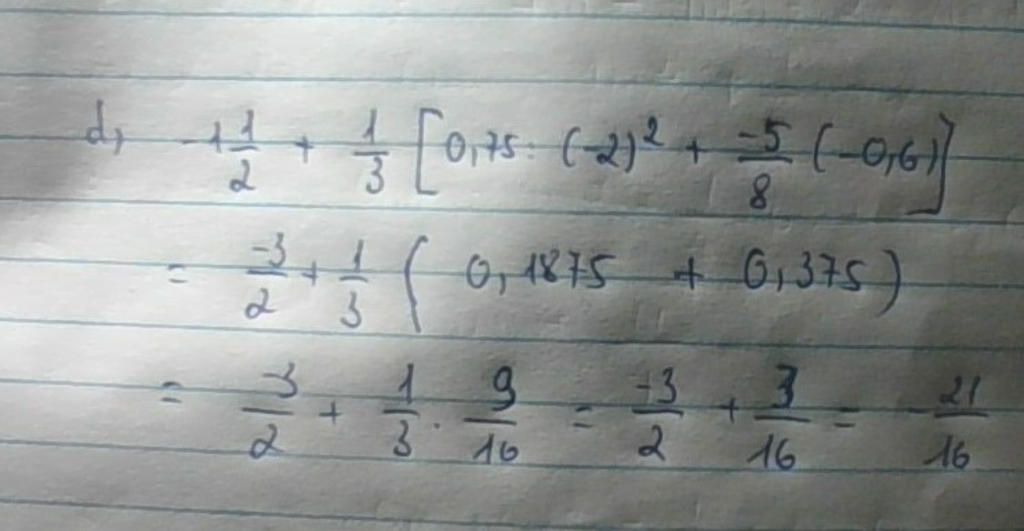 d, -1 1/2 + 1/3 [0,75 : (-2)² + -5/8 (-0,6)]
= -3/2 + 1/3 ( 0,1875 + 0,375)
= -3/2 + 1/3 . 9/16 = -3/2 + 3/16 = - 21/16